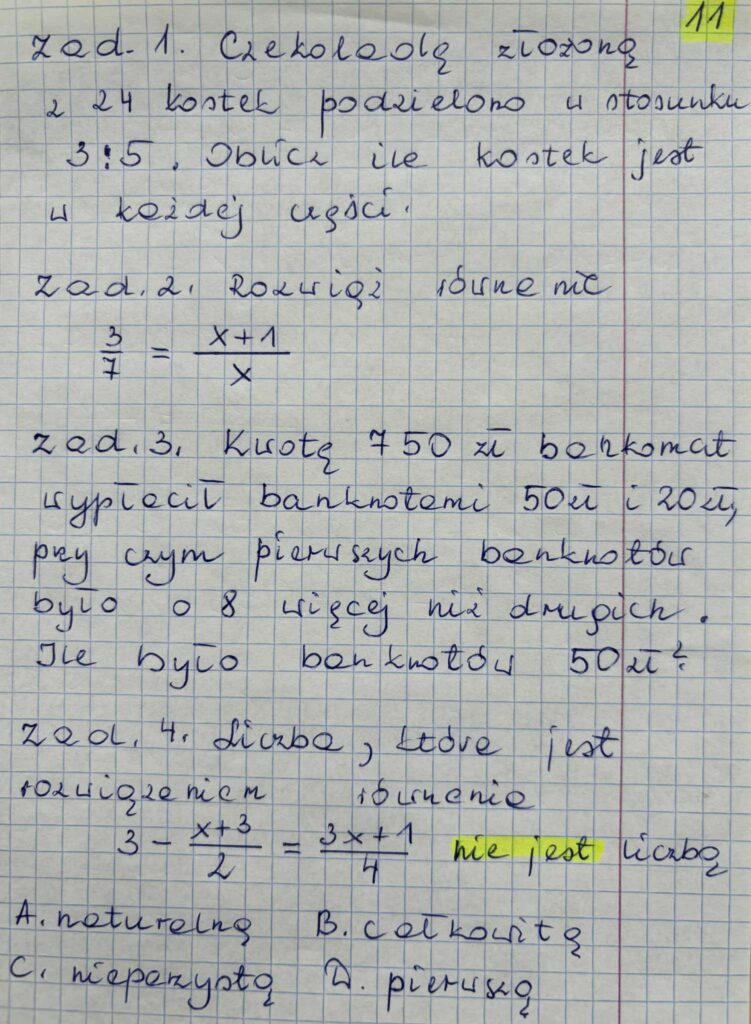 11
zad. 1. Czekoladę złożoną
z 24 kostek podzielono w stosunku
3:5. Oblicz ile kostek jest
w każdej części.
zad. 2. Rozwiąż równanie
3/7 = (x+1)/x
zad. 3. Kwotę 750 zł bankomat
wypłacił banknotami 50zł i 20zł,
przy czym pierwszych banknotów
było o 8 więcej niż drugich.
Ile było banknotów 50zł?
zad. 4. Liczba, która jest
rozwiązaniem równania
3 - (x+3)/2 = (3x+1)/4 nie jest liczbą
A. naturalną B. całkowitą
C. nieparzystą D. pierwszą